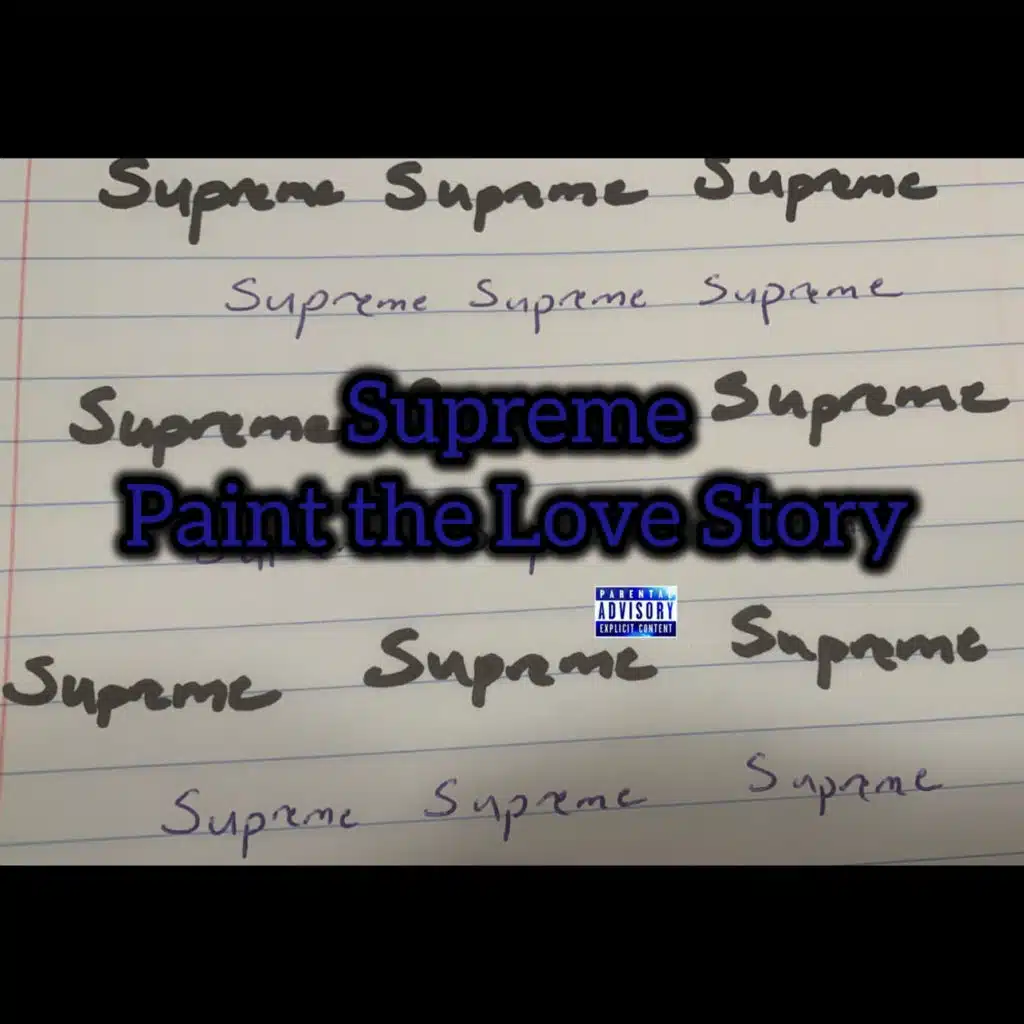 Supreme Supreme Supreme
Supreme Supreme Supreme
Supreme Supreme Supreme
Paint the Love Story
PARENTAL
ADVISORY
EXPLICIT CONTENT
Supreme Supreme Supreme
Supreme Supreme Supreme